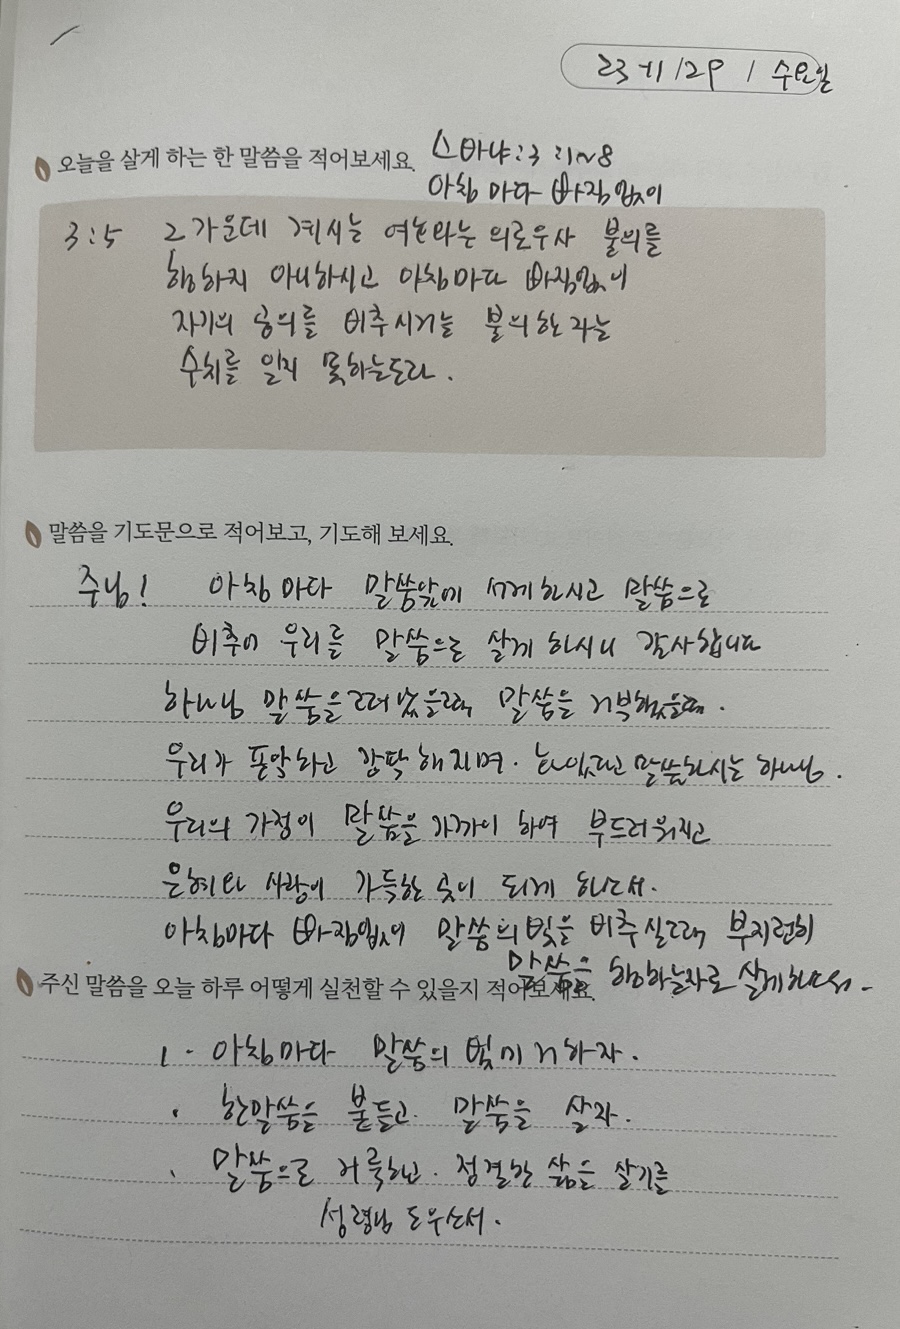 23 11/29 / 수요일
오늘을 살게 하는 한 말씀을 적어보세요.
스바냐 : 3 : 1~8
아침 마다 빠짐없이
3:5 그 가운데 계시는 여호와는 의로우사 불의를
행하지 아니하시고 아침마다 빠짐없이
자기의 공의를 비추시거늘 불의한 자는
수치를 알지 못하는도다.
말씀을 기도문으로 적어보고, 기도해 보세요.
주님! 아침 마다 말씀앞에 서게 하시고 말씀으로
비추어 우리를 말씀으로 살게 하시니 감사합니다
하나님 말씀을 떠났을때 말씀을 거부했을때.
우리가 포악하고 강퍅해지며. 말씀하시는 하나님.
우리의 가정이 말씀을 가까이 하여 부드러워지고
은혜와 사랑이 가득한 곳이 되게 하소서.
아침마다 빠짐없이 말씀의 빛을 비추실때 부지런히
말씀을 행하는자로 살게하소서.
주신 말씀을 오늘 하루 어떻게 실천할 수 있을지 적어보세요.
1. 아침마다 말씀의 빛에 거하자.
. 한말씀을 붙들고. 말씀을 살자.
. 말씀으로 거룩하고. 정결한 삶을 살기를
성령님 도우소서.